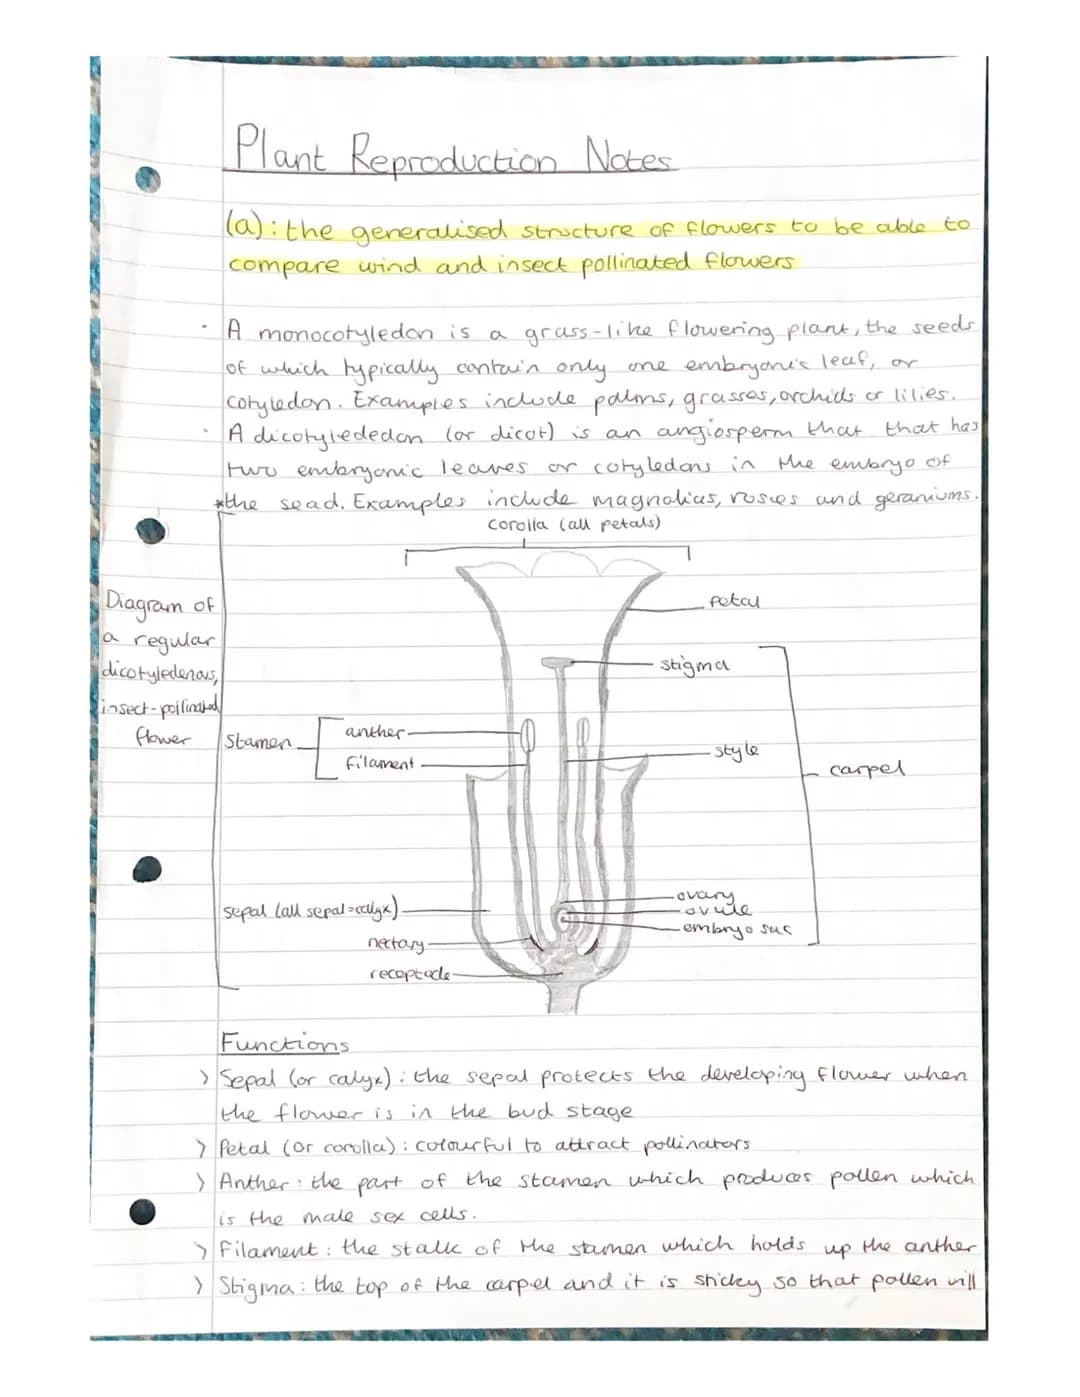 Plant Reproduction Notes
(a): the generalised structure of flowers to be able to
compare wind and insect pollinated flowers
· A monocotyledon is a grass-like flowering plant, the seeds
of which typically contain only one embryonic leaf, or
cotyledon. Examples include palms, grasses, orchids or lilies.
· A dicotylededon (or dicot) is an angiosperm that that has
two embryonic leaves or cotyledons in the embryo of
*the sead. Examples include magnolias, rosies and geraniums.
corolla (all petals)
Diagram of
a regular
dicotyledenous,
insect-pollinated
flower
petal
stigma
Stamen
anther
filament
style
carpel
sepal (all sepal=calyx)
nectary
receptacle
ovary
ovule
embryo sac
Functions
> Sepal (or calyx): the sepal protects the developing flower when
the flower is in the bud stage
> Petal (or corolla): colourful to attract pollinators
> Anther: the part of the stamen which produces pollen which
is the male sex cells.
> Filament: the stalk of the stamen which holds up the anther
> Stigma: the top of the carpel and it is sticky so that pollen will